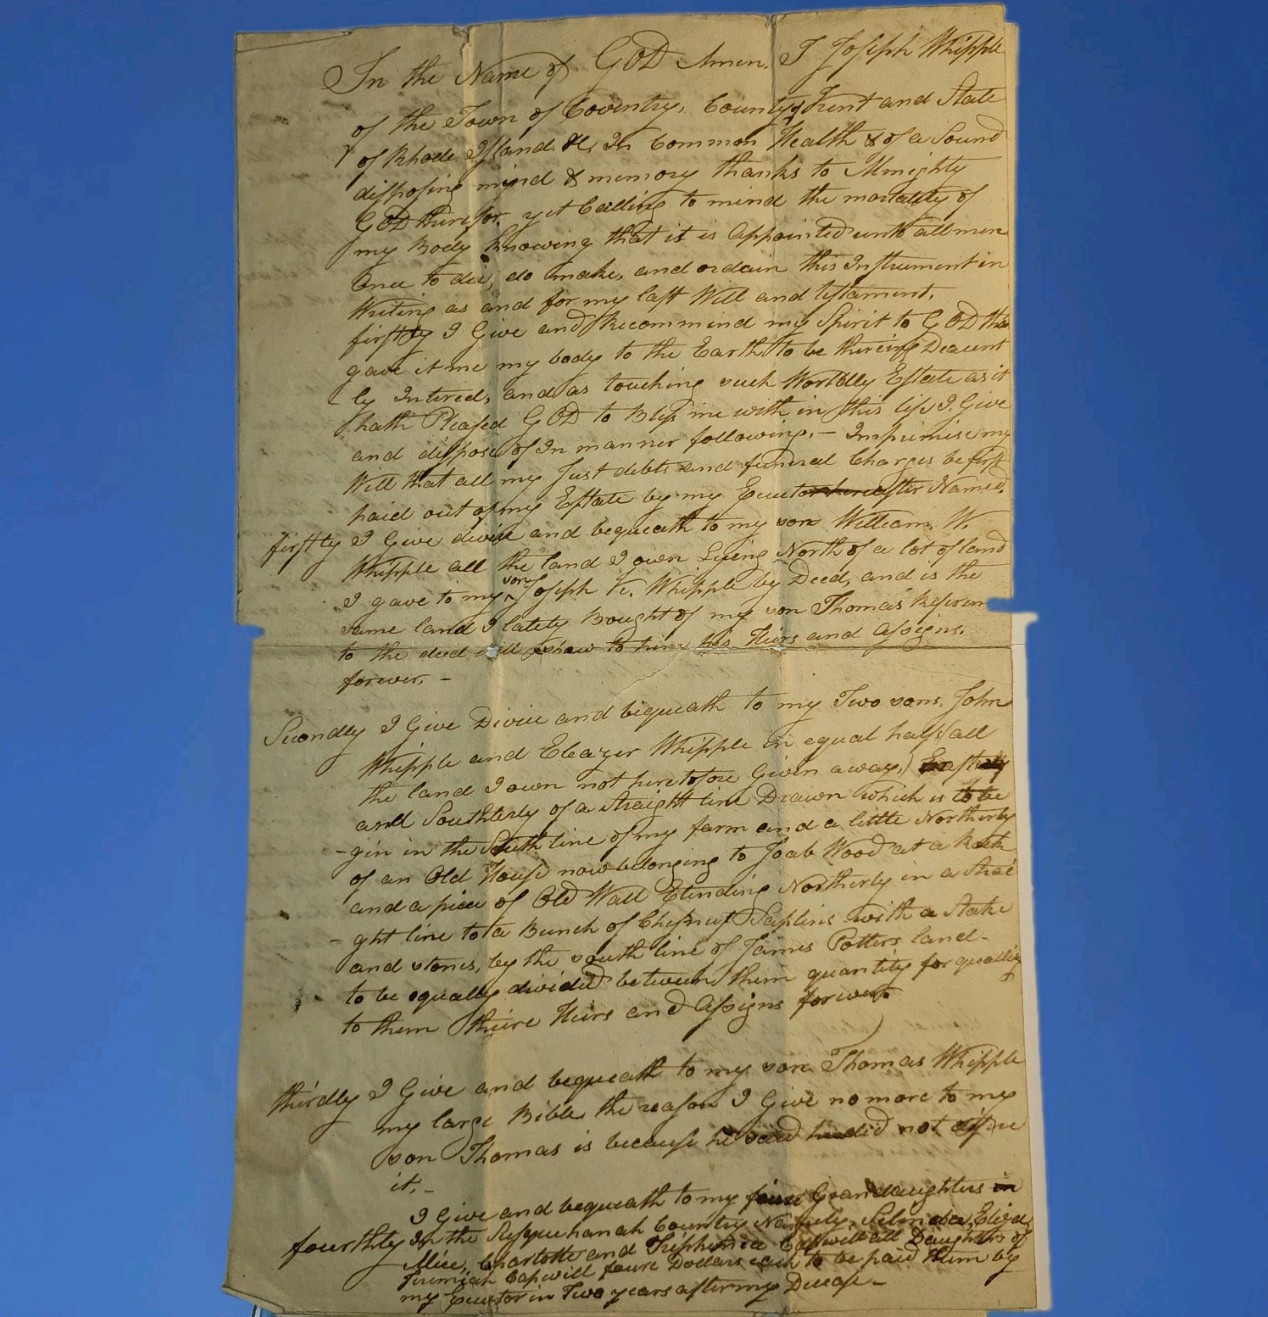 In the Name of GOD Amen. I Joseph Whipple
of the Town of Coventry, County of Kent and State
of Rhode Island &c, In Common Health & of a Sound
disposing mind & memory thanks to Almighty
GOD therefor, yet Calling to mind the mortality of
my Body Knowing that it is Appointed unto all men
Once to die, do make, and ordain this Instrument in
Writing as and for my last Will and Testament.
firstly I Give and Recommind my Spirit to GOD that
gave it me my body to the Earth to be therein Deacent
ly Intered, and as touching such Worldly Estate as it
hath Pleased GOD to Bless me with in this life I Give
and dispose of In manner following. – Imprimis my
Will that all my Just debts and funeral Charges be first
paid out of my Estate by my Executor hereafter Named,
firstly I Give divise and bequeath to my son William W.
Whipple all the land I own Lying North of a lot of land
I gave to my son Joseph K. Whipple by Deed, and is the
same land I lately Bought of my son Thomas
to the deed will show to him his Heirs and Assigns.
forever. –
Secondly I Give Divise and bequeath to my Two sons, John
Whipple and Eleazer Whipple in equal half all
the land I own not heretofore Given away,
and Southerly of a straight line Drawn which is to be
-gin in the South line of my farm and a little Northerly
of an Old House now belonging to Joab Wood at a
and a piece of Old Wall Extending Northerly in a Strai
-ght line to a Bunch of Chesnut Saplins with a Stake
and stones, by the south line of James Potters land –
to be equally divided between them quantity for quality
to them theire Heirs and Assigns forever
thirdly I Give and bequeath to my son Thomas Whipple
my large Bible the reason I Give no more to my
son Thomas is because he said he did not
it, –
I Give and bequeath to my Grandaughters in
fourthly In the Susquehanah Country Namely, Eliza,
Alice, Charlotte and Triphenia Capwill all Daughters of
Jeremiah Capwill foure Dollars each to be paid them by
my Executor in Two years after my Decease –